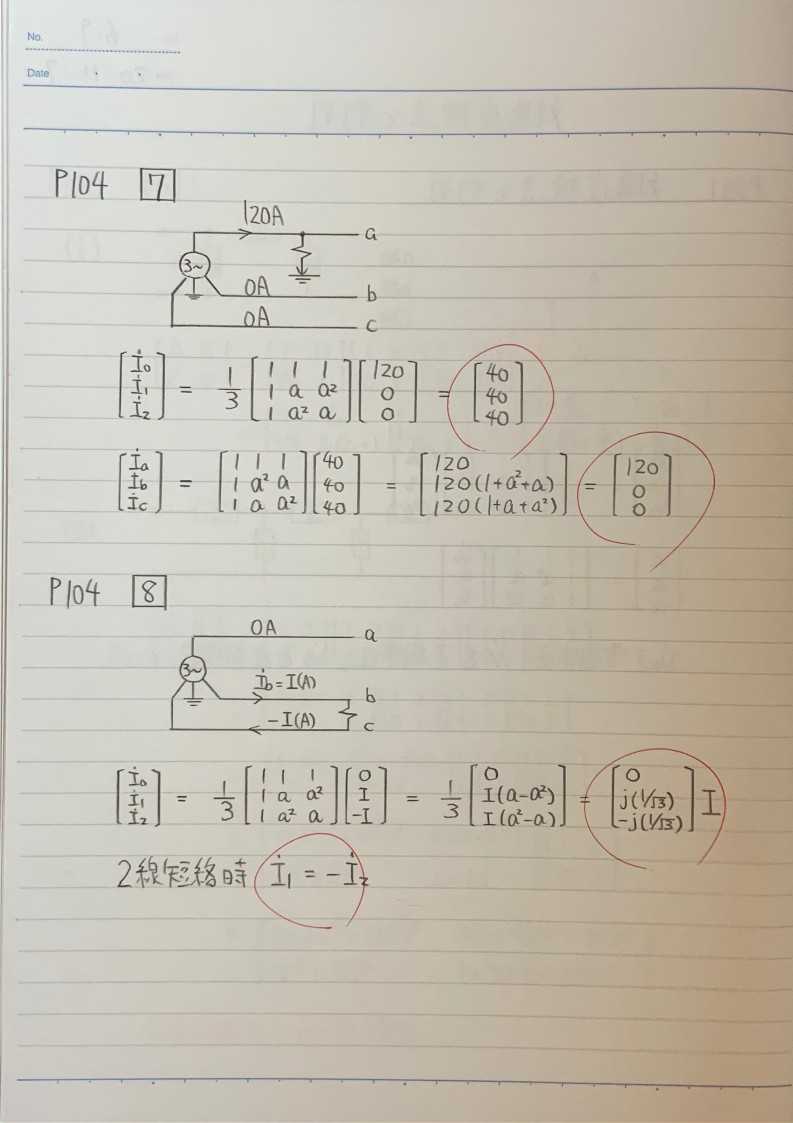 No.
Date
P104 7
120A
a
3~
0A
b
0A
c
[İ0 İ1 İ2] = 1/3 [1 1 1 1 a a² 1 a² a] [120 0 0] = [40 40 40]
[İa İb İc] = [1 1 1 1 a² a 1 a a²] [40 40 40] = [120 120(1+a²+a) 120(1+a+a²)] = [120 0 0]
P104 8
0A
a
3~
İb=I(A)
b
-I(A)
c
[İ0 İ1 İ2] = 1/3 [1 1 1 1 a a² 1 a² a] [0 I -I] = 1/3 [0 I(a-a²) I(a²-a)] = [0 j(1/√3) -j(1/√3)] I
2線短絡時 İ1 = -İ2